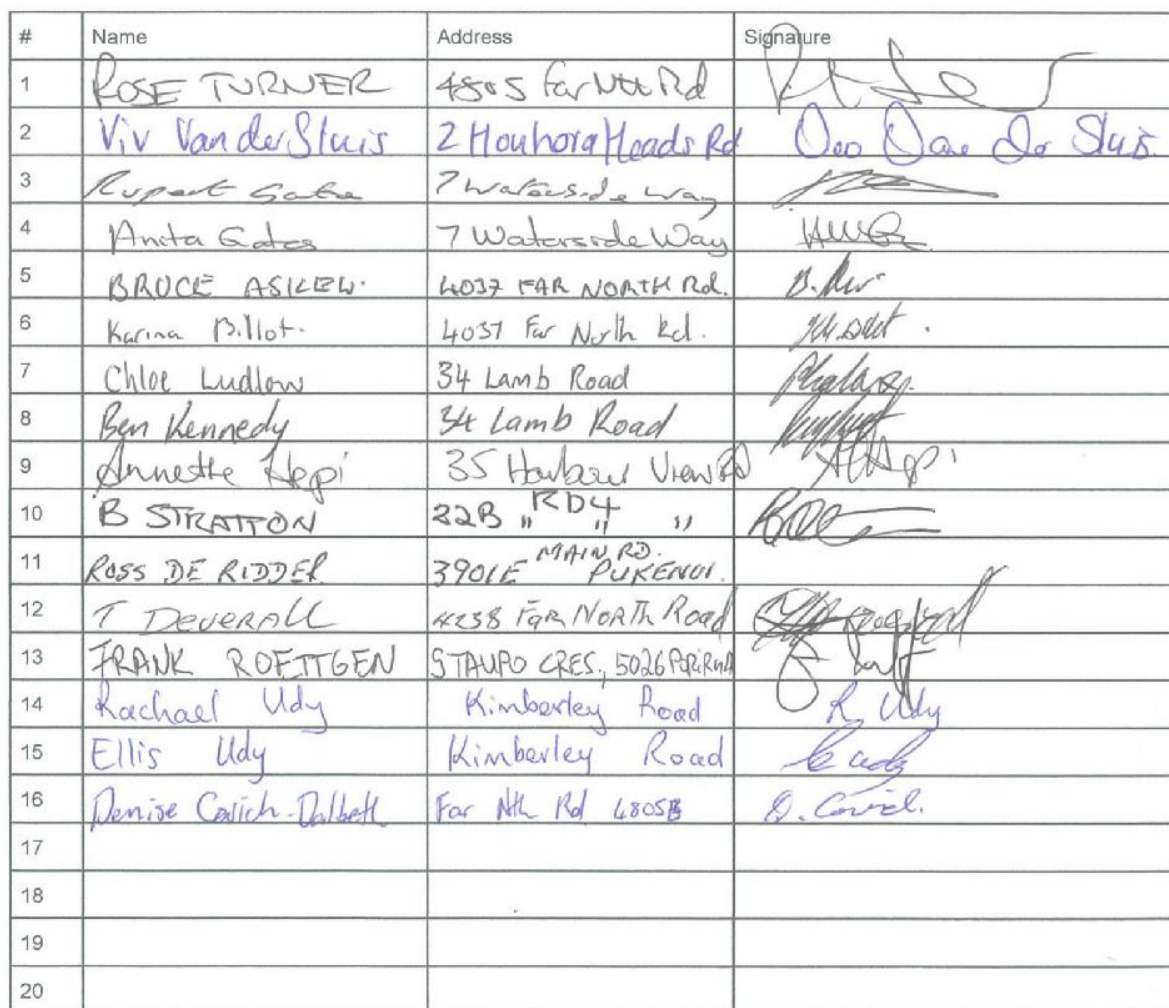 # Name Address Signature
1 ROSE TURNER 4805 Far Nth Rd
2 Viv Van der Sluis 2 Houhora Heads Rd Van Der Sluis
3 Rupert 7 Waterside Way
4 Anita Gates 7 Waterside Way
5 BRUCE ASKEW. 4037 FAR NORTH Rd.
6 Karina Billot. 4037 Far North Rd.
7 Chloe Ludlow 34 Lamb Road
8 Ben Kennedy 34 Lamb Road
9 Annette Hepi 35 Harbour View Rd AHepi
10 B STRATTON 22B " RD4 " "
11 ROSS DE RIDDER 3901E MAIN RD. PUKENUI.
12 T Deverall 4238 Far North Road
13 FRANK ROETTGEN 5 TAUPO CRES., 5026 PORIRUA
14 Rachael Udy Kimberley Road R Udy
15 Ellis Udy Kimberley Road E Udy
16 Denise Covich-Dalbeth Far Nth Rd 4805B D. Covich.
17
18
19
20